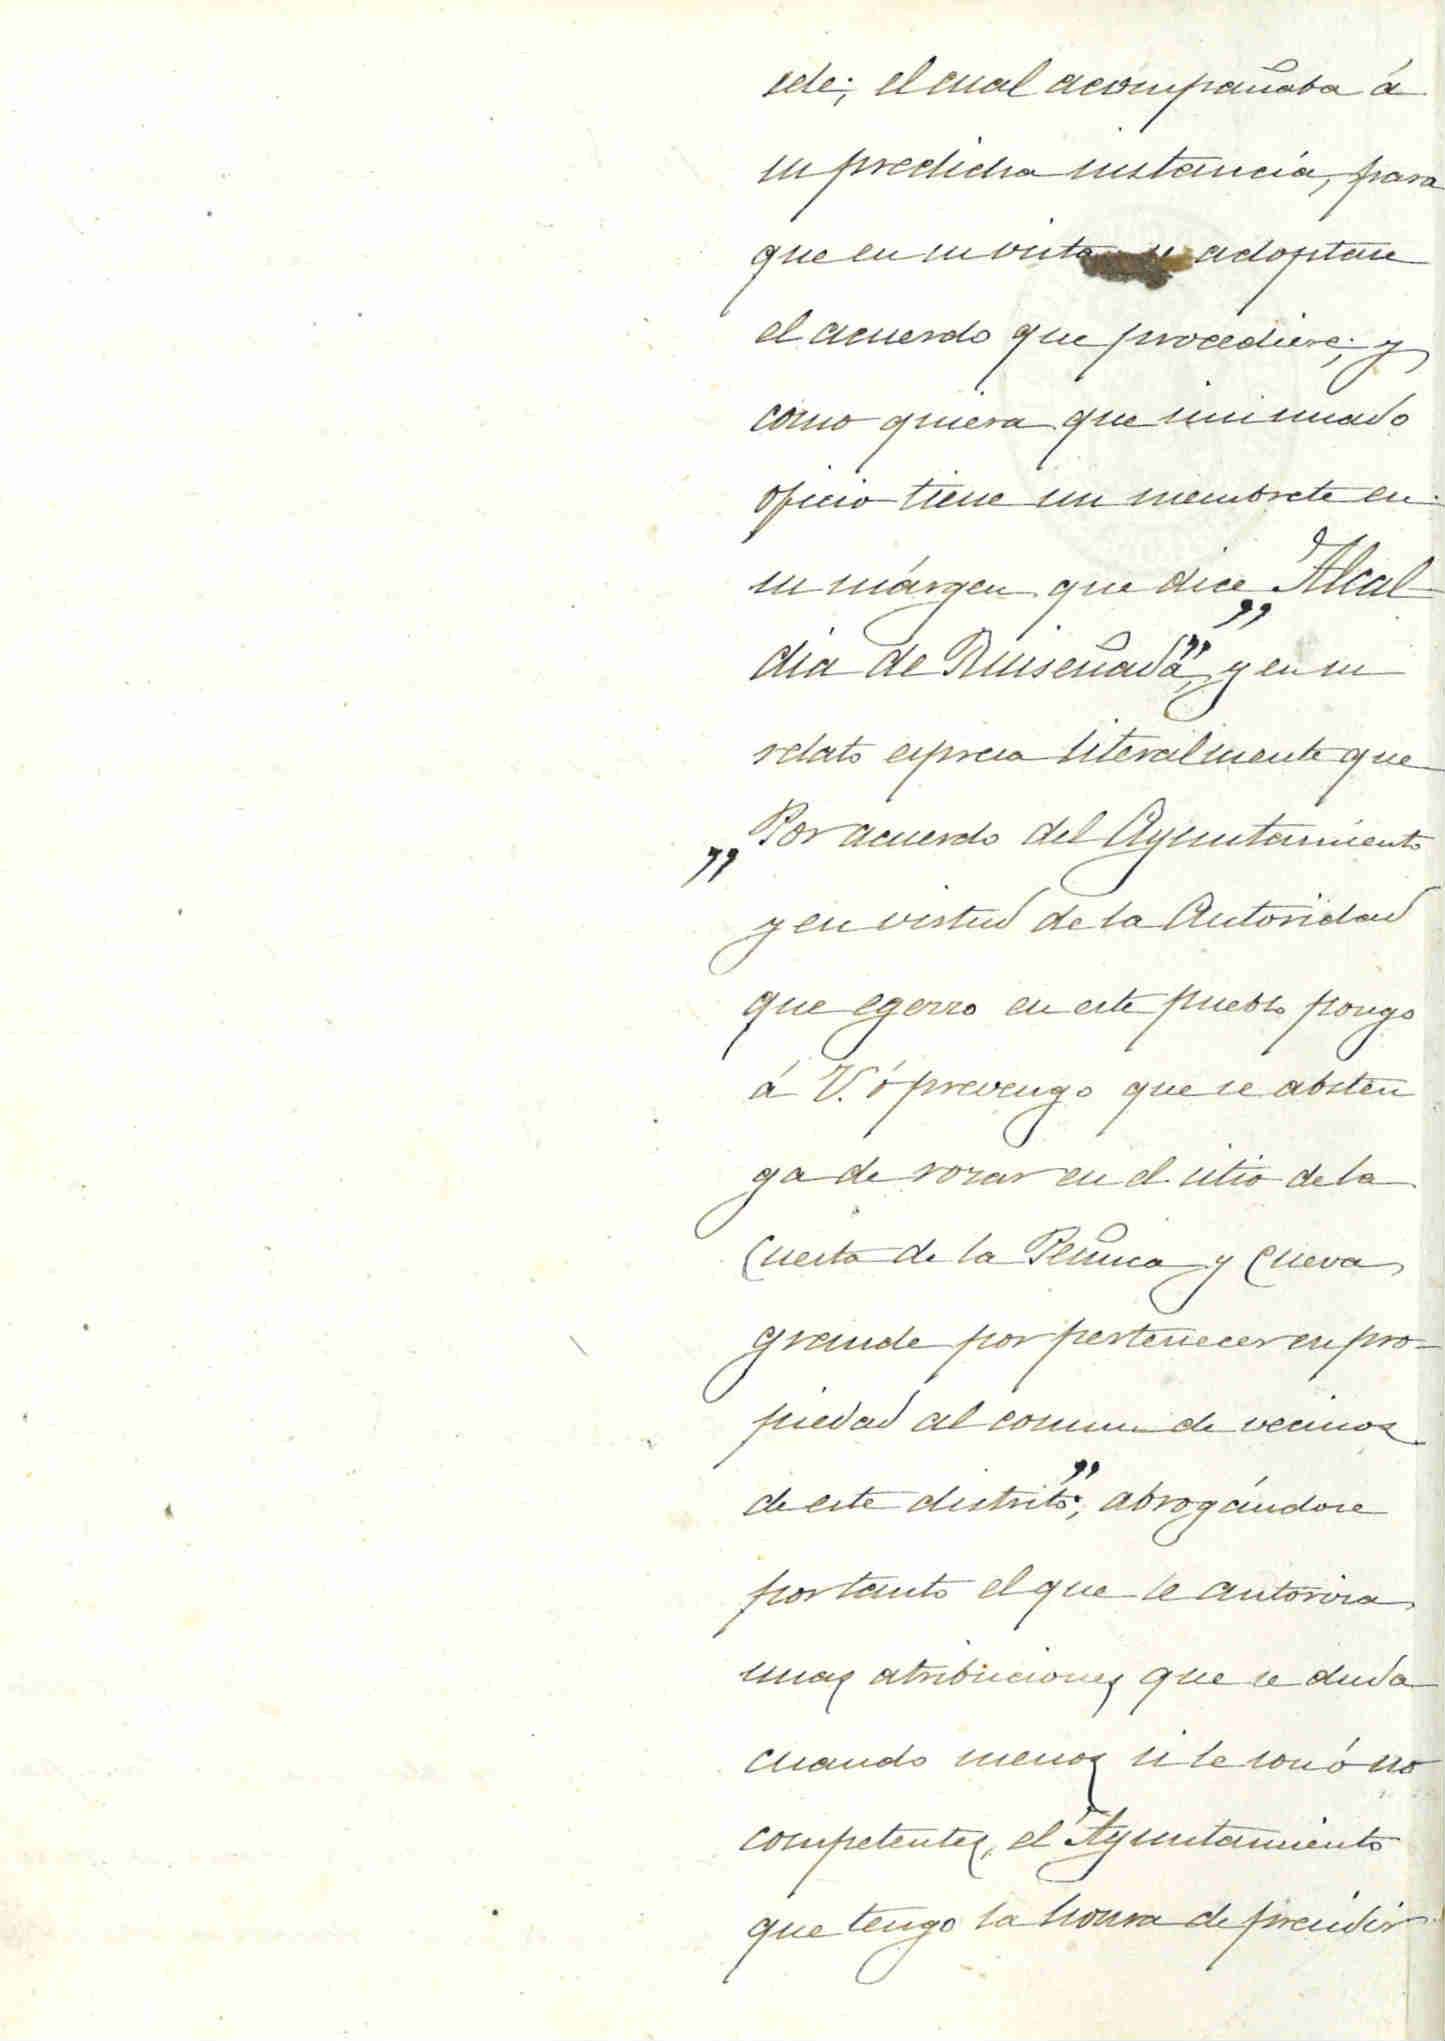 cede; el cual acompañaba á
su predicha instancia, para
que en su vista se adoptase
el acuerdo que procediere; y
como quiera que insinuado
oficio tiene un membrete en
su márgen que dice "Alcal-
dia de Ruiseñada", y en su
relato expresa literalmente que
"Por acuerdo del Ayuntamiento
y en virtud de la Autoridad
que egerzo en este pueblo pongo
á V. ó prevengo que se absten
ga de rozar en el sitio de la
Cuesta de la Peñuca y Cueva
grande por pertenecer en pro-
piedad al comun de vecinos
de este distrito"; abrogándose
por tanto el que le autoriza
unas atribuciones que se duda
cuando menos si le son ó no
competentes, el Ayuntamiento
que tengo la honra de presidir